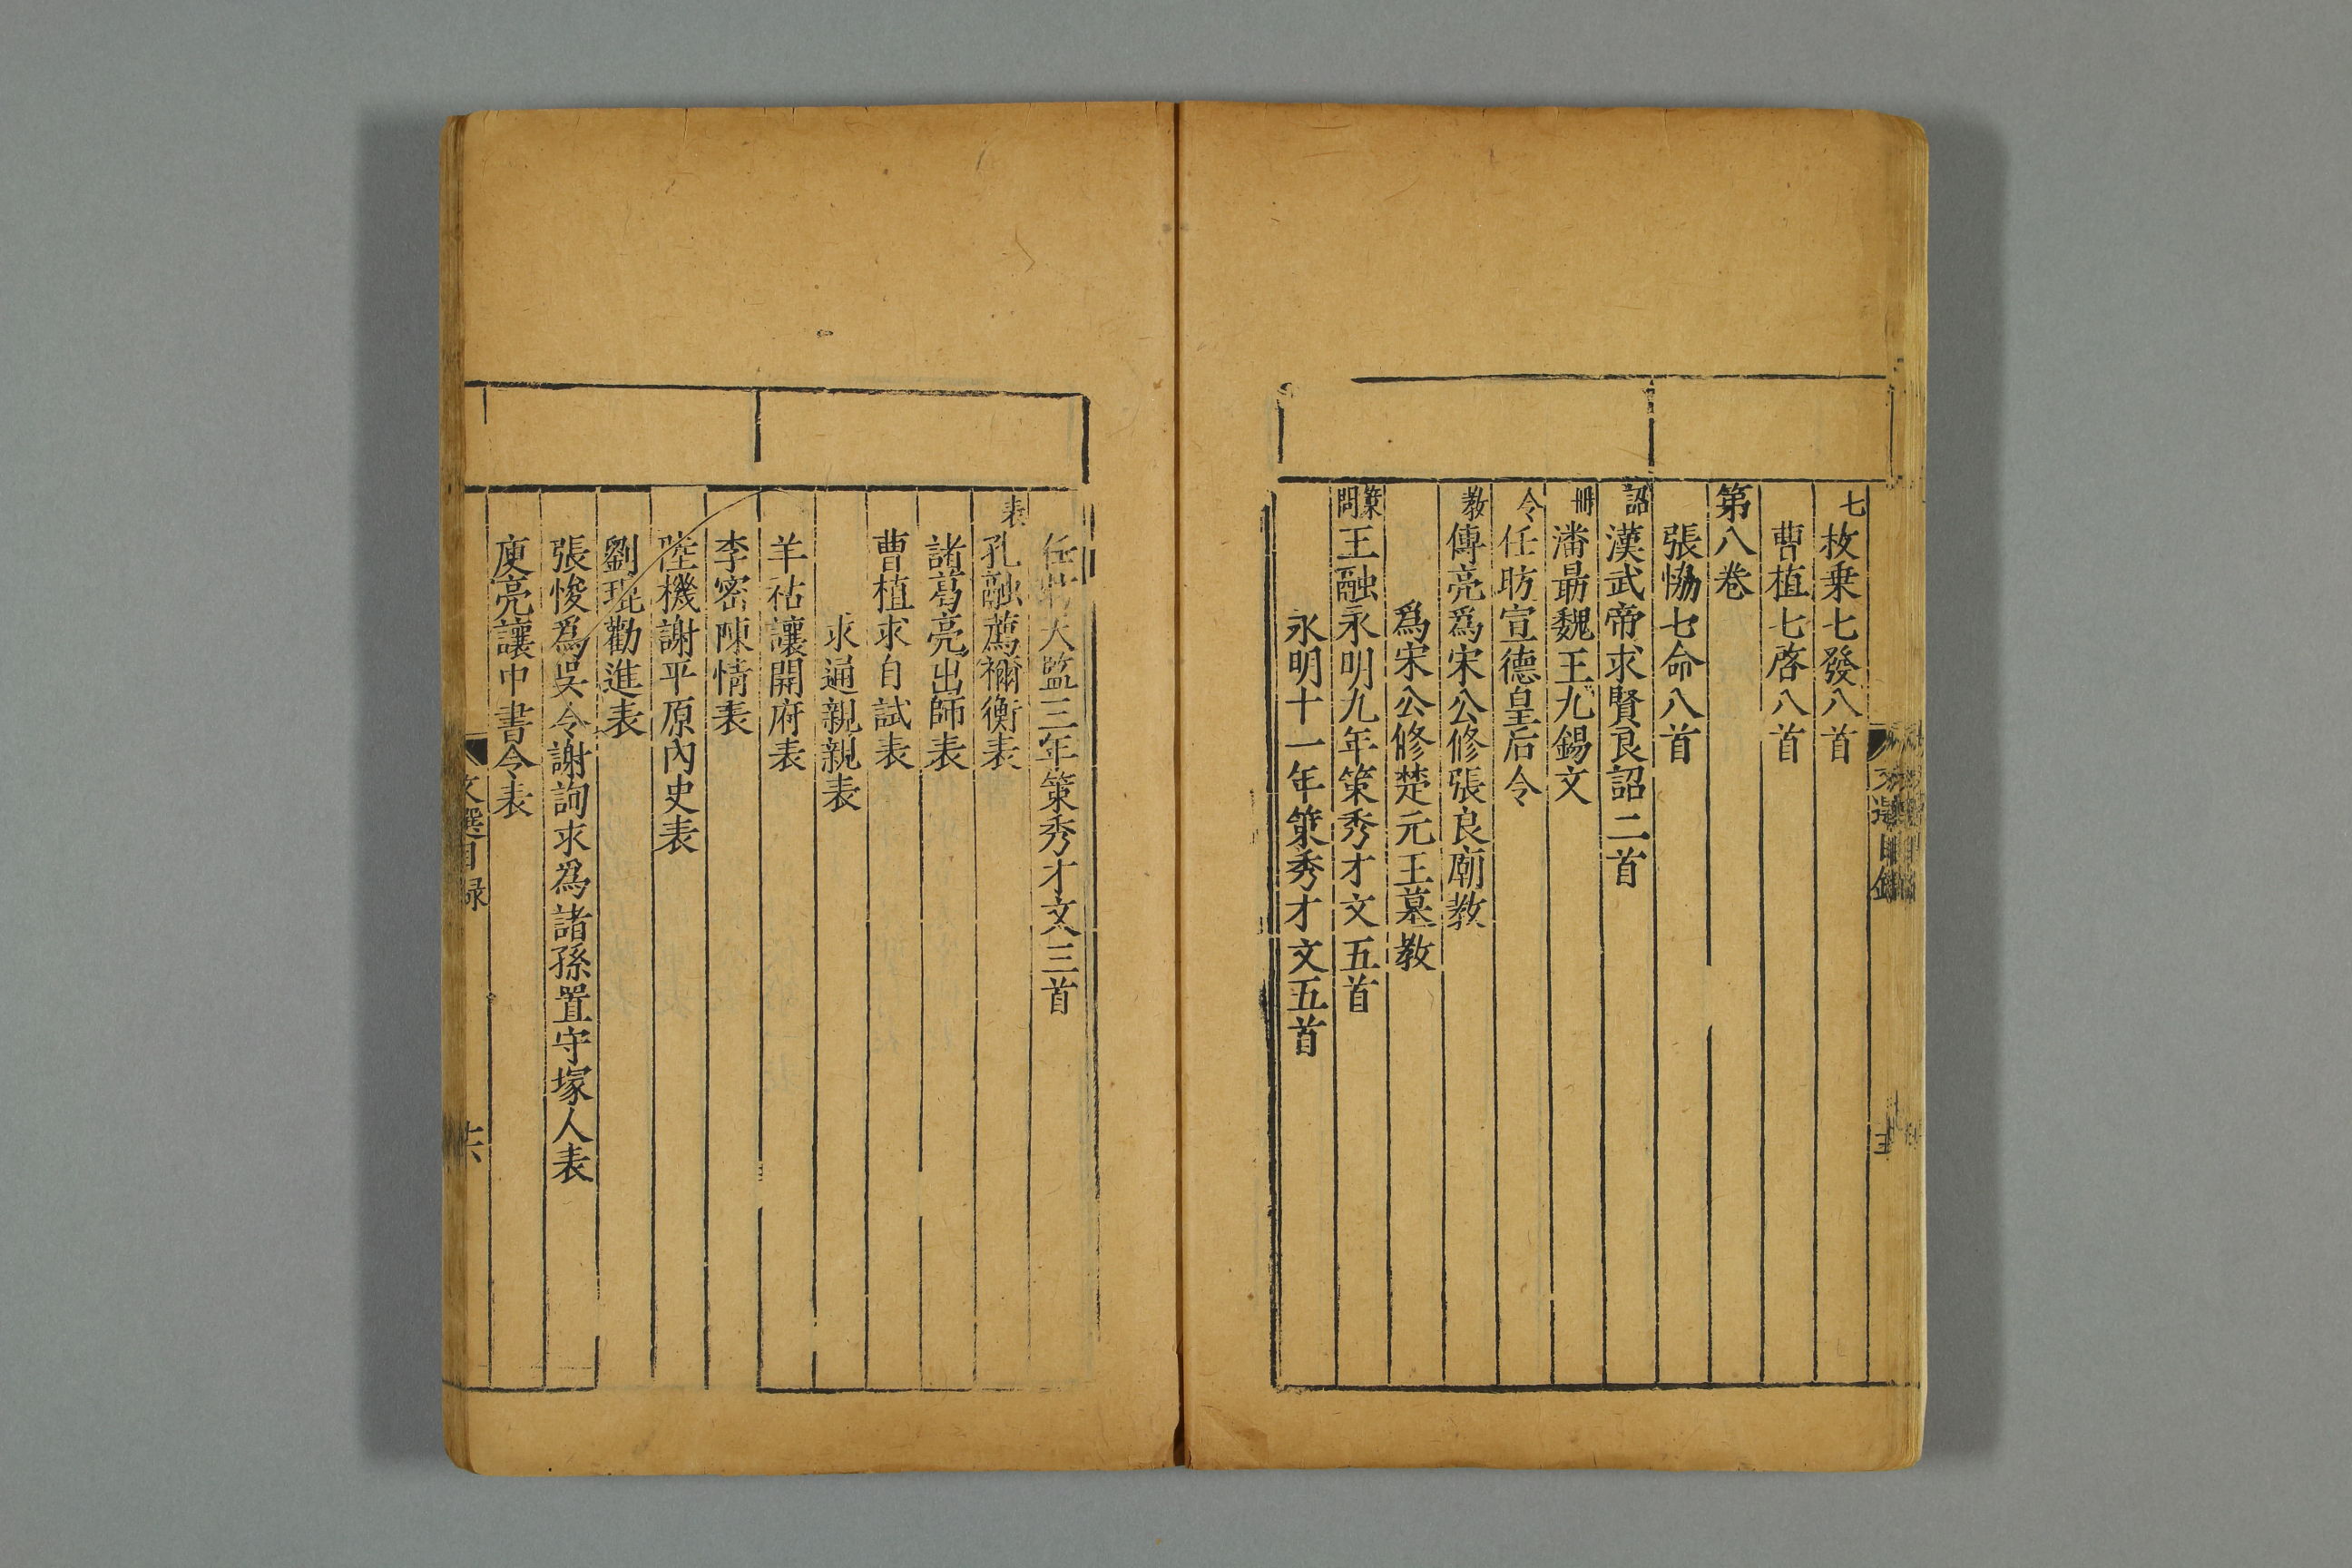 七 枚乗七發八首
曹植七啓八首
第八卷
張協七命八首
詔 漢武帝求賢良詔二首
冊 潘勗魏王九錫文
令 任昉宣德皇后令
教 傳亮爲宋公修張良廟教
爲宋公修楚元王墓教
策問 王融永明九年策秀才文五首
永明十一年策秀才文五首
任昉天監三年策秀才文三首
表 孔融薦禰衡表
諸葛亮出師表
曹植求自試表
求通親親表
羊祜讓開府表
李密陳情表
陸機謝平原內史表
劉琨勸進表
張悛爲吳令謝詢求爲諸孫置守塚人表
庾亮讓中書令表
文選目録